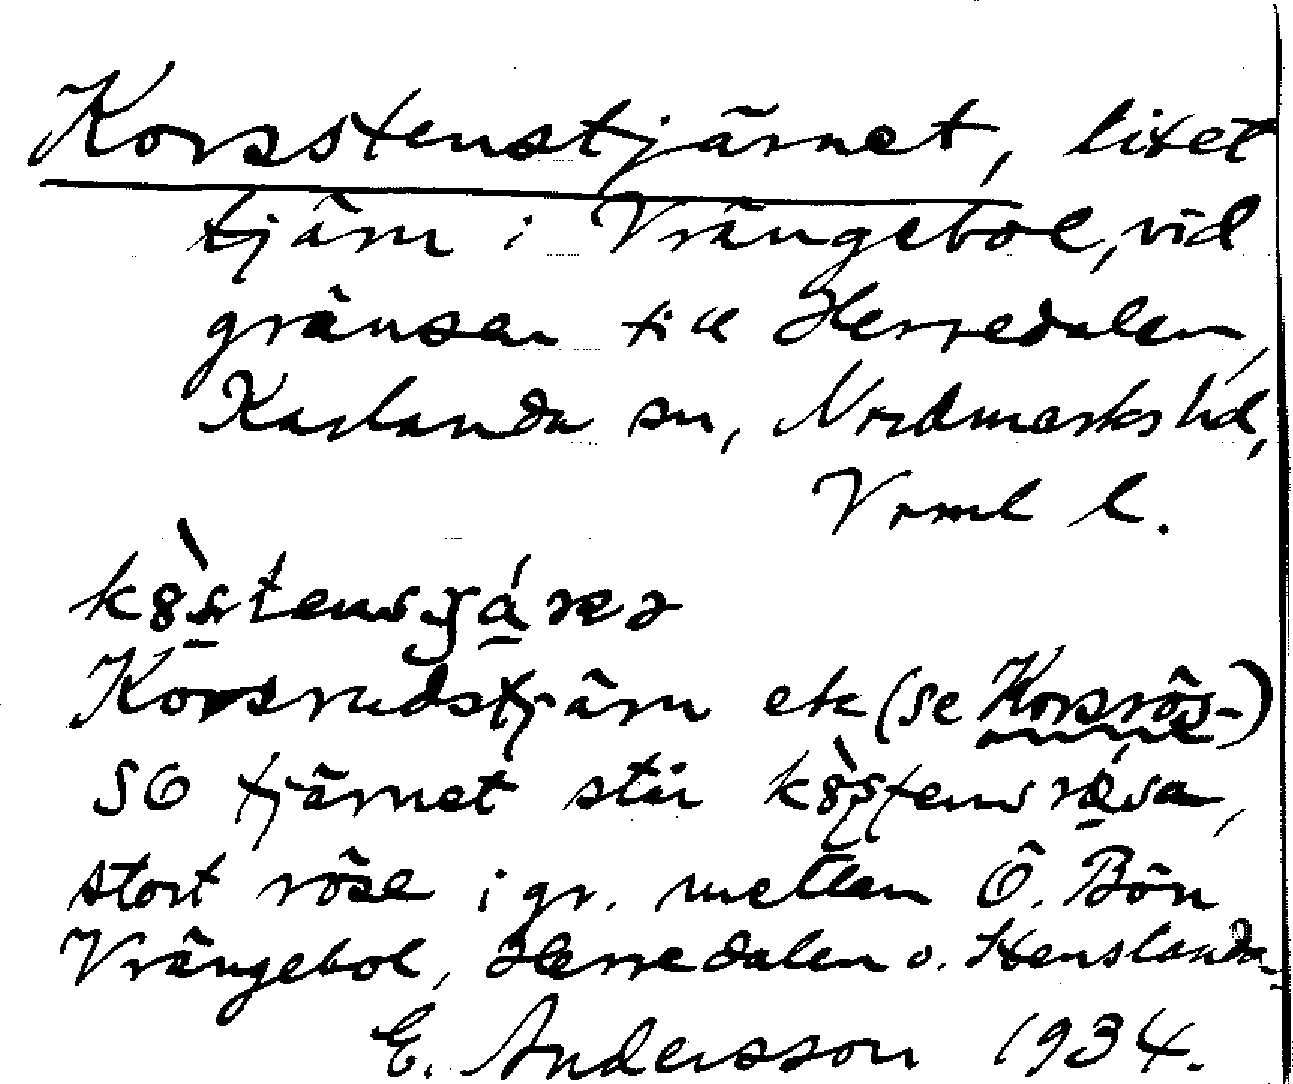 Korsstenstjärnet, litet
tjärn i Vrängebol, vid
gränsen till Herredalen,
Karlanda sn, Nordmarks hd,
Vrml l.
Korsrudstjärn ek (se Korsrös-)
SO tjärnet står
stort röse i gr. mellan Ö. Bön
Vrängebol, Herredalen o. Henslanda
E. Andersson 1934.